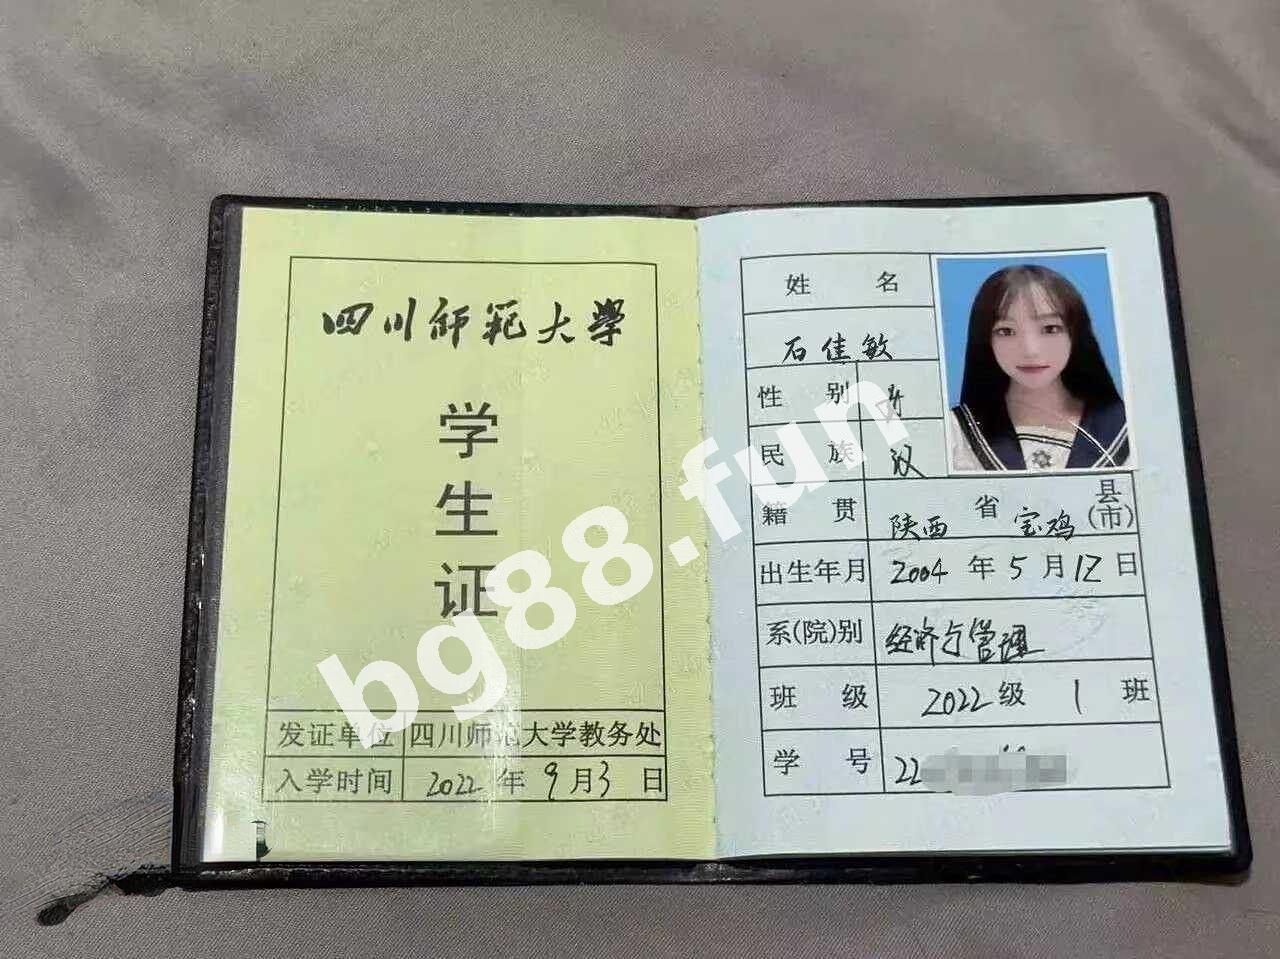 四川师范大学
学
生
证
发证单位 四川师范大学教务处
入学时间 2022 年 9 月 3 日
姓 名
石佳敏
性 别
民 族 汉
籍 贯 陕西 省 宝鸡 县(市)
出生年月 2004 年 5 月 12 日
系(院)别 经济与管理
班 级 2022 级 1 班
学 号 22
bg88.fun